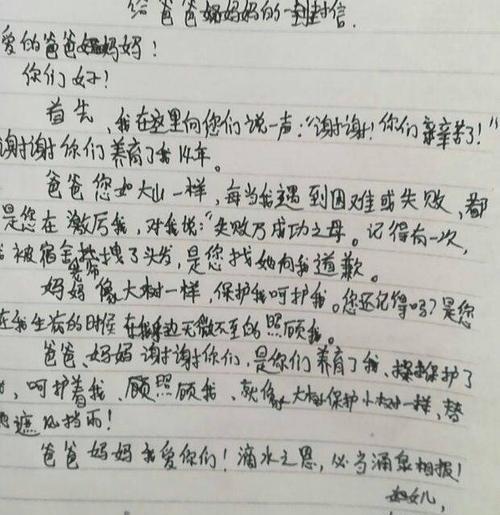 给爸爸妈妈的一封信.
爱的爸爸妈妈!
你们好!
首先、我在这里向您们说一声:“谢谢!你们辛苦了!”
谢谢你们养育了我14年。
爸爸您如大山一样,每当我遇到困难或失败,都
是您在激厉我,对我说:“失败乃成功之母。记得有一次,
被宿舍老师拽了头发,是您找她向我道歉。
妈妈像大树一样,保护我呵护我。您还记得吗?是您
在我生病的时候在我身边无微不至的照顾我。
爸爸、妈妈谢谢你们,是你们养育了我、保护了
,呵护着我、照顾我、就像大树保护小树一样,替
遮风挡雨!
爸爸妈妈我爱你们!滴水之恩,必当涌泉相报!
女儿,